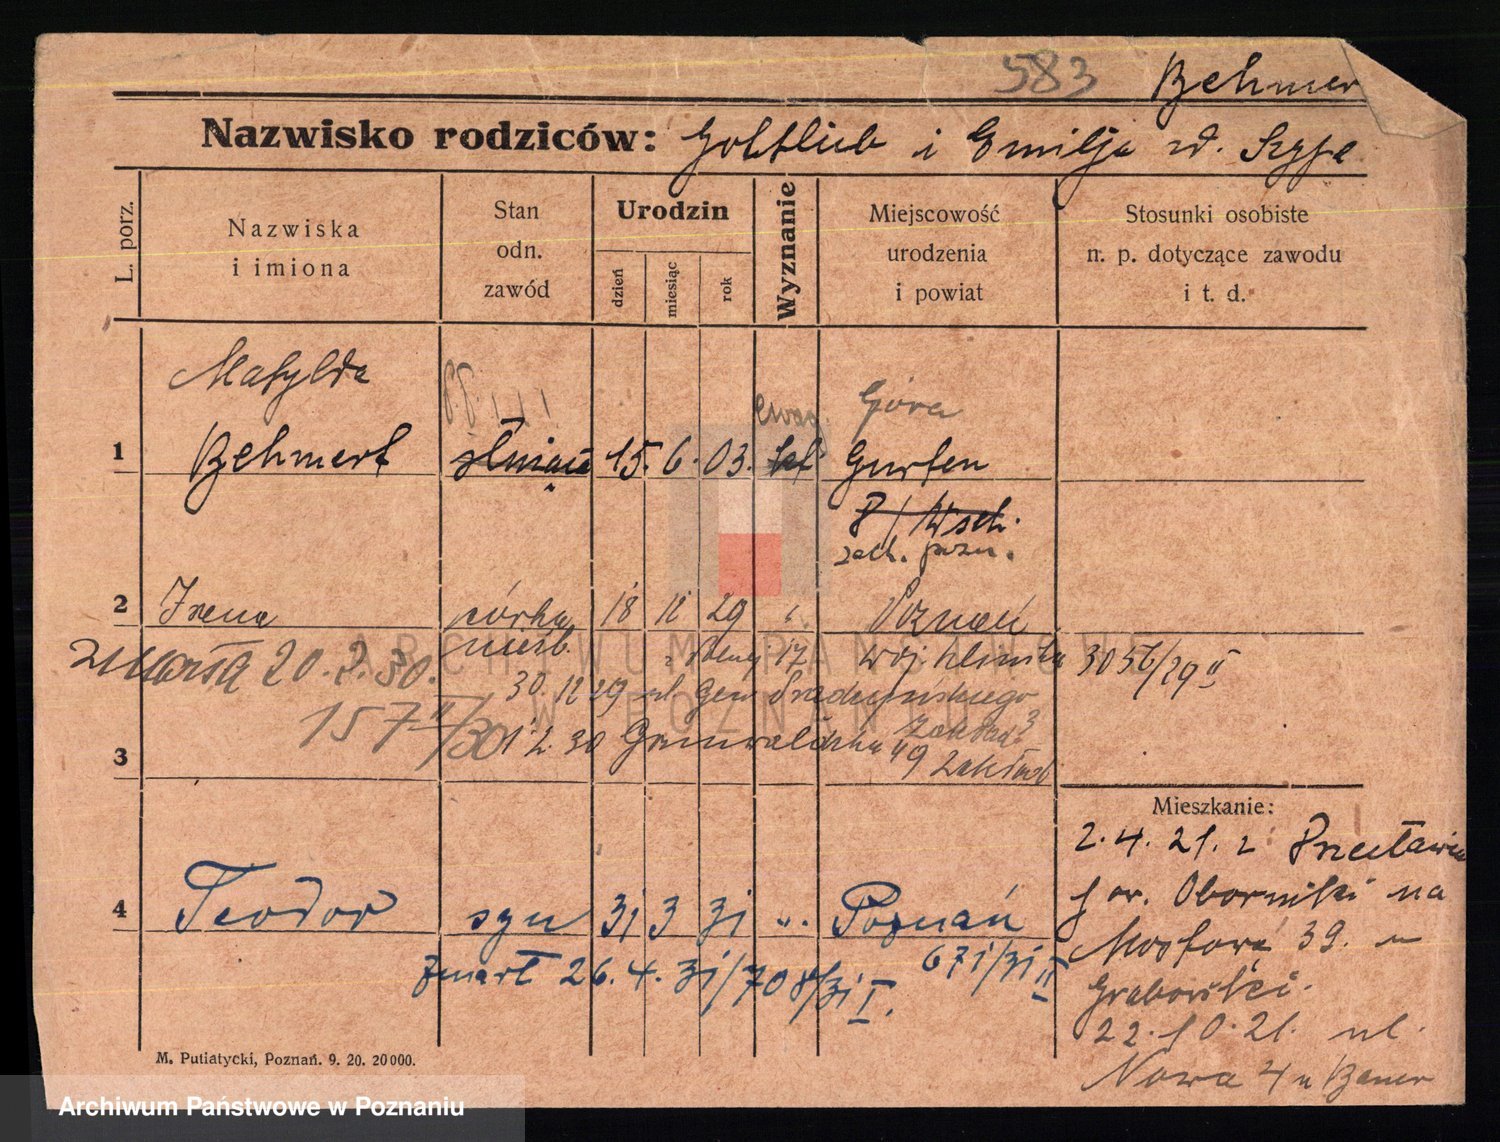 583 Behmer
Nazwisko rodziców: Gottlieb i Emilja zd.
L. porz.
Nazwiska
i imiona
Stan
odn.
zawód
Urodzin
dzień
miesiąc
rok
Wyznanie
Miejscowość
urodzenia
i powiat
Stosunki osobiste
n. p. dotyczące zawodu
i t. d.
Matylda
ewag. Góra
1 Behmert służąca 15. 6. 03. kt Gurten
/ Wsch.
zach. pozn.
2 Irena córka 18 12 29 " Poznań
nieśl.
zmarła 20.2.30. 17 Woj. Klinika 3056/29 II
30. 12 29 ul. Gen. Prądzyńskiego
157 II/30 1 2. 30 Grunwaldzka 49 Zakład
Zakład 3
3
4 Teodor syn 31 3 31 " Poznań
671/31 II
zmarł 26.4.31/708/31 I.
Mieszkanie:
2.4.21. z
pow. Oborniki na
Mostowa 39. u
Grabowski.
22.10.21. ul.
Nowa 4 u Baner
M. Putiatycki, Poznań. 9. 20. 20000.
ARCHIWUM PAŃSTWOWE
W POZNANIU
Archiwum Państwowe w Poznaniu